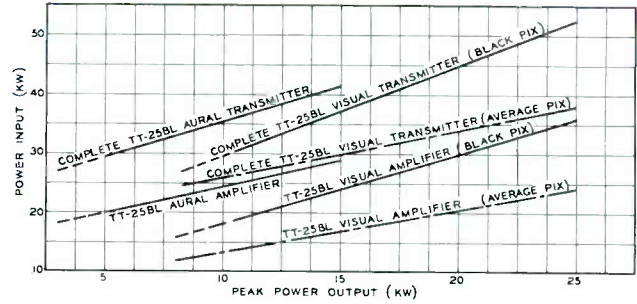 50
40
30
20
10
POWER INPUT (KW)
COMPLETE TT-25BL AURAL TRANSMITTER
COMPLETE TT-25BL VISUAL TRANSMITTER (BLACK PIX)
COMPLETE TT-25BL VISUAL TRANSMITTER (AVERAGE PIX)
TT-25BL AURAL AMPLIFIER
TT-25BL VISUAL AMPLIFIER (BLACK PIX)
TT-25BL VISUAL AMPLIFIER (AVERAGE PIX)
5 10 15 20 25
PEAK POWER OUTPUT (KW)